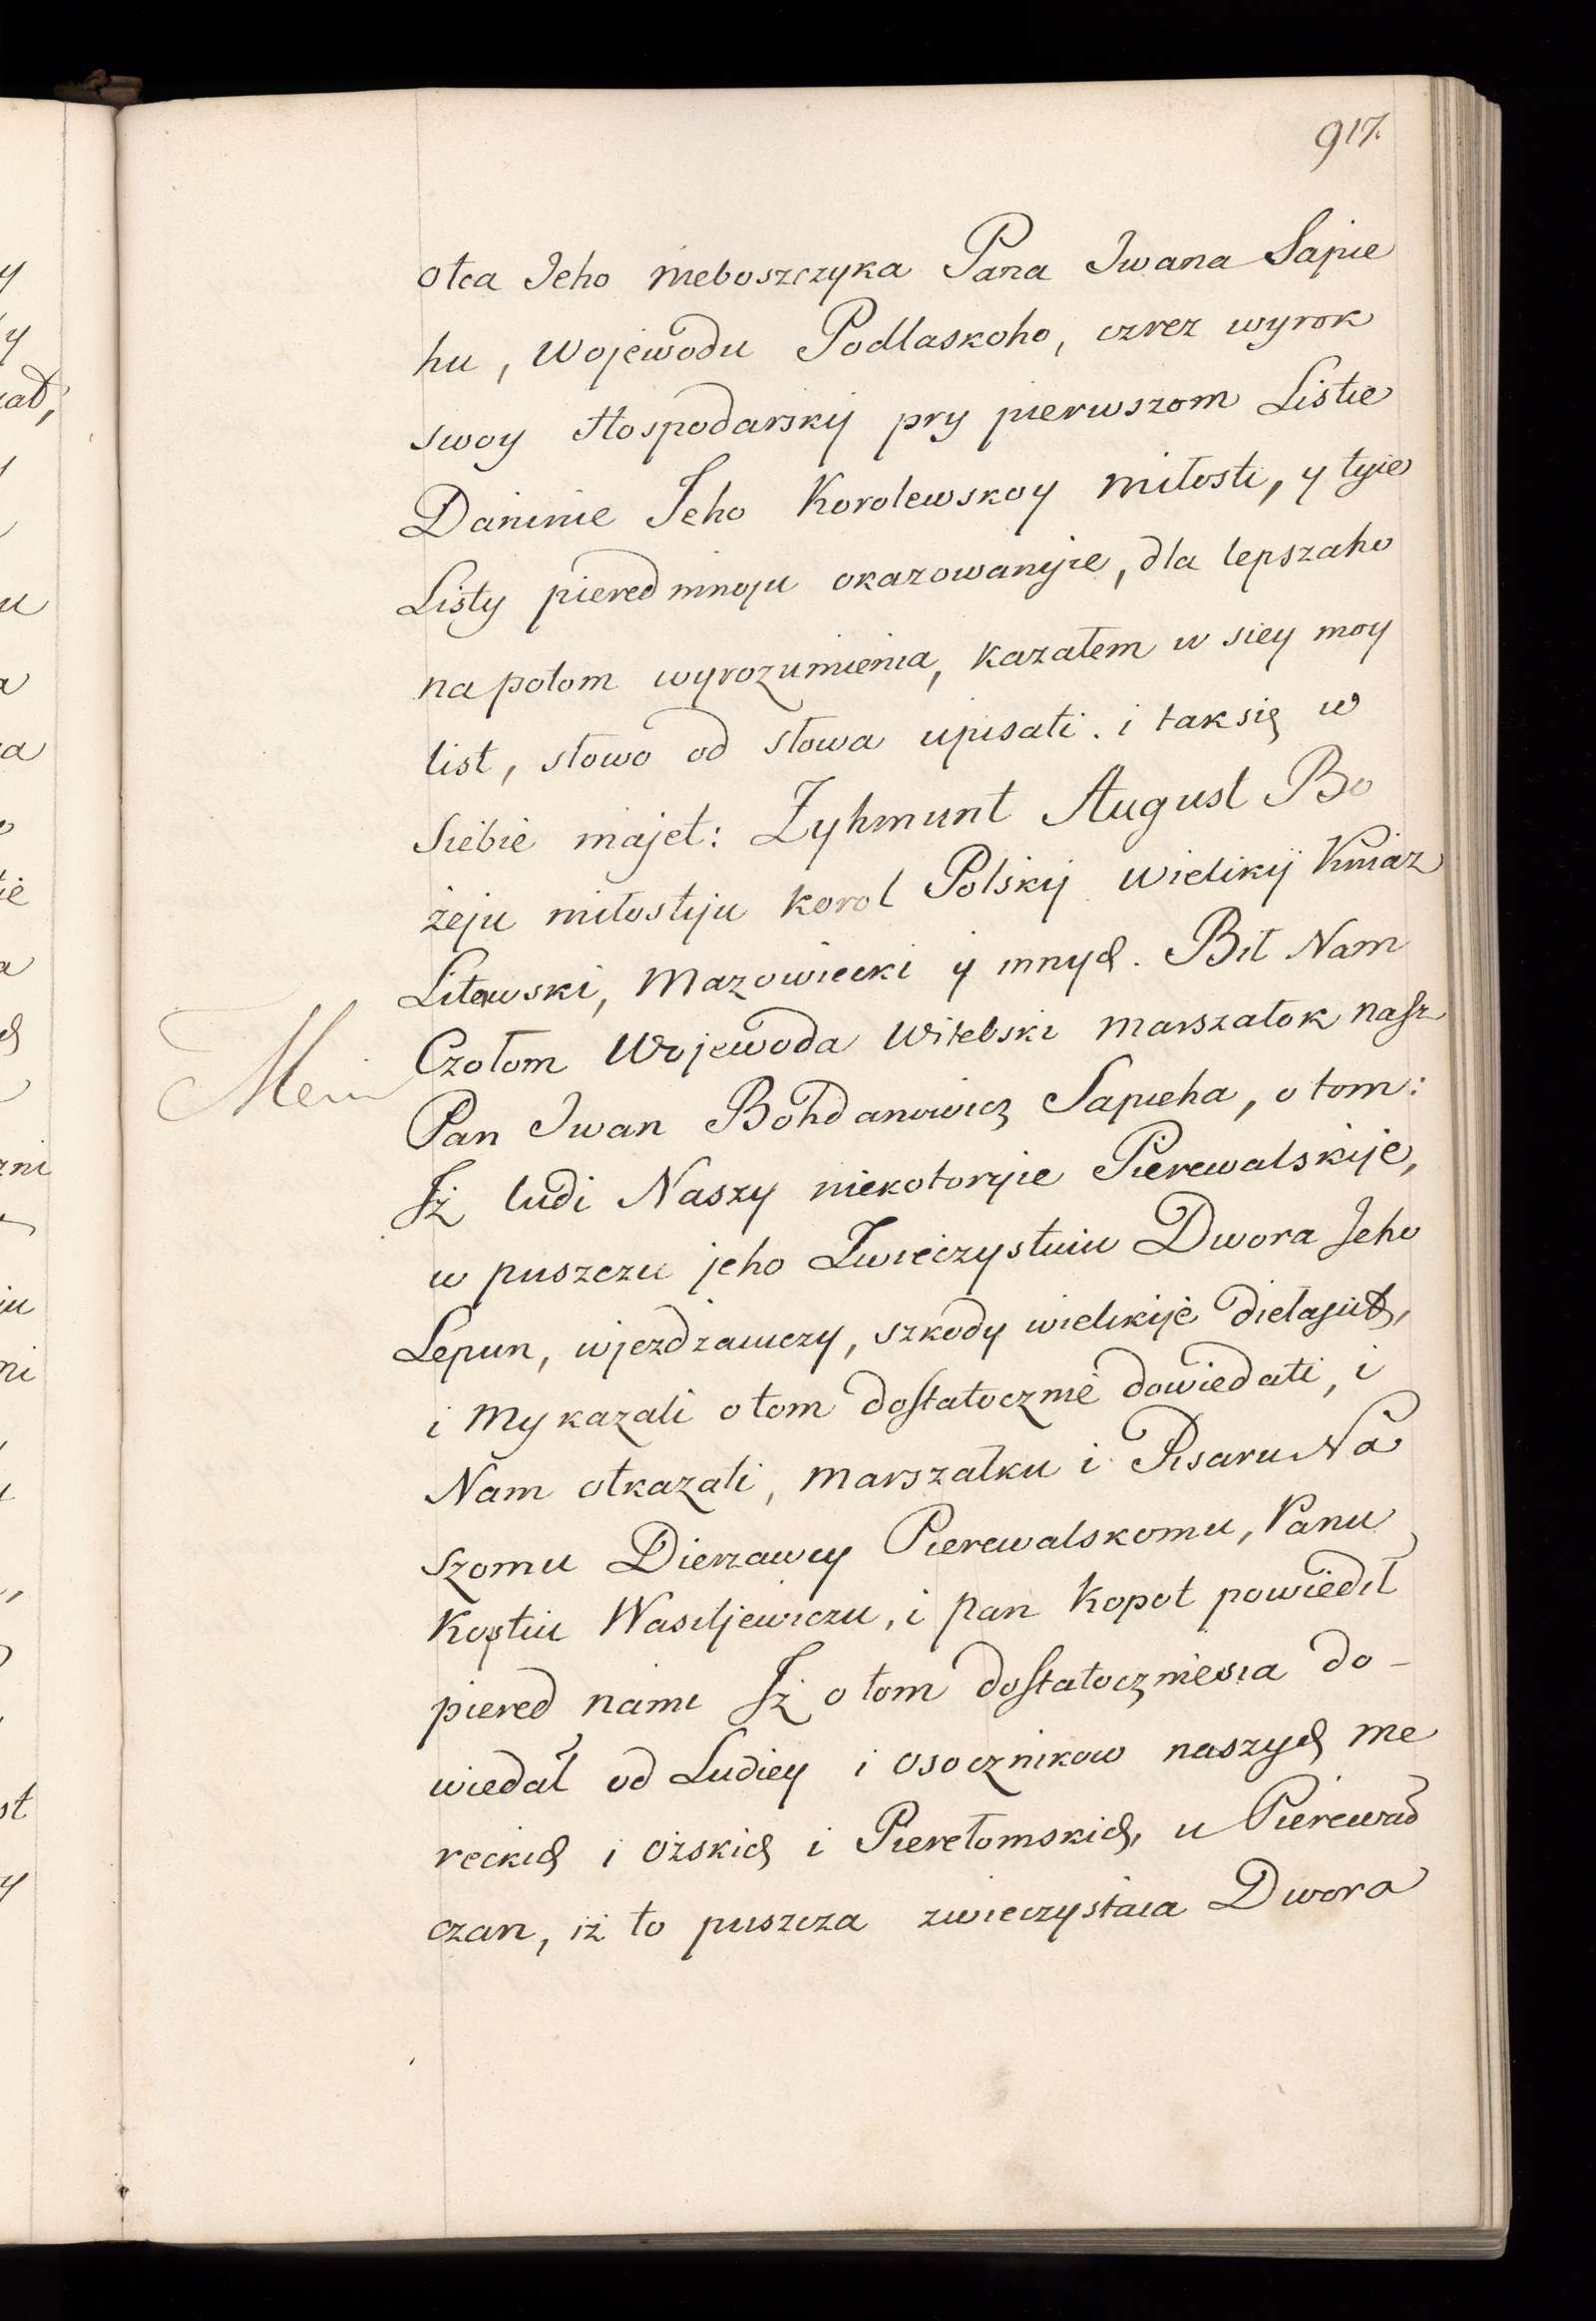 917.
otca Jeho nieboszczyka Pana Iwana Sapie
hu, Wojewodu Podlaskoho, czrez wyrok
swoy Hospodarskij pry pierwszom Listie
Daninie Jeho Korolewskoy miłosti, y tyie
Listy pieredmnoju okazowanyie, dla lepszaho
na potom wyrozumienia, kazałem w siey moy
list, słowo od słowa upisati. i tak się w
siebie majet: Zyhmunt August Bo
żeju miłostiju korol Polskij wielikij Kniaz
Litowski, Mazowiecki ij innych. Bił Nam
Czołom Wojewoda Witebski marszałok nasz
Pan Iwan Bohdanowicz Sapieha, o tom:
Iż ludi Naszy niekotoryie Pierewalskije,
w puszczu jeho Zwieczystuiu Dwora Jeho
Lepun, wjezdzaiuczy, szkody wielikije diełajut,
i my kazali o tom dostatocznie dowiedati, i
Nam otkazati, marszałku i Pisaru Na
szomu Dierzawcy Pierewalskomu, Panu
Kostiu Wasiljewiczu, i pan Kopot powiedił
piered nami Iż o tom dostatoczniesia do-
wiedał od Ludiey i osocznikow naszych me
reckich i ożskich i Pierełomskich, u Pierewał
czan, iż to puszcza zwieczystaia Dwora